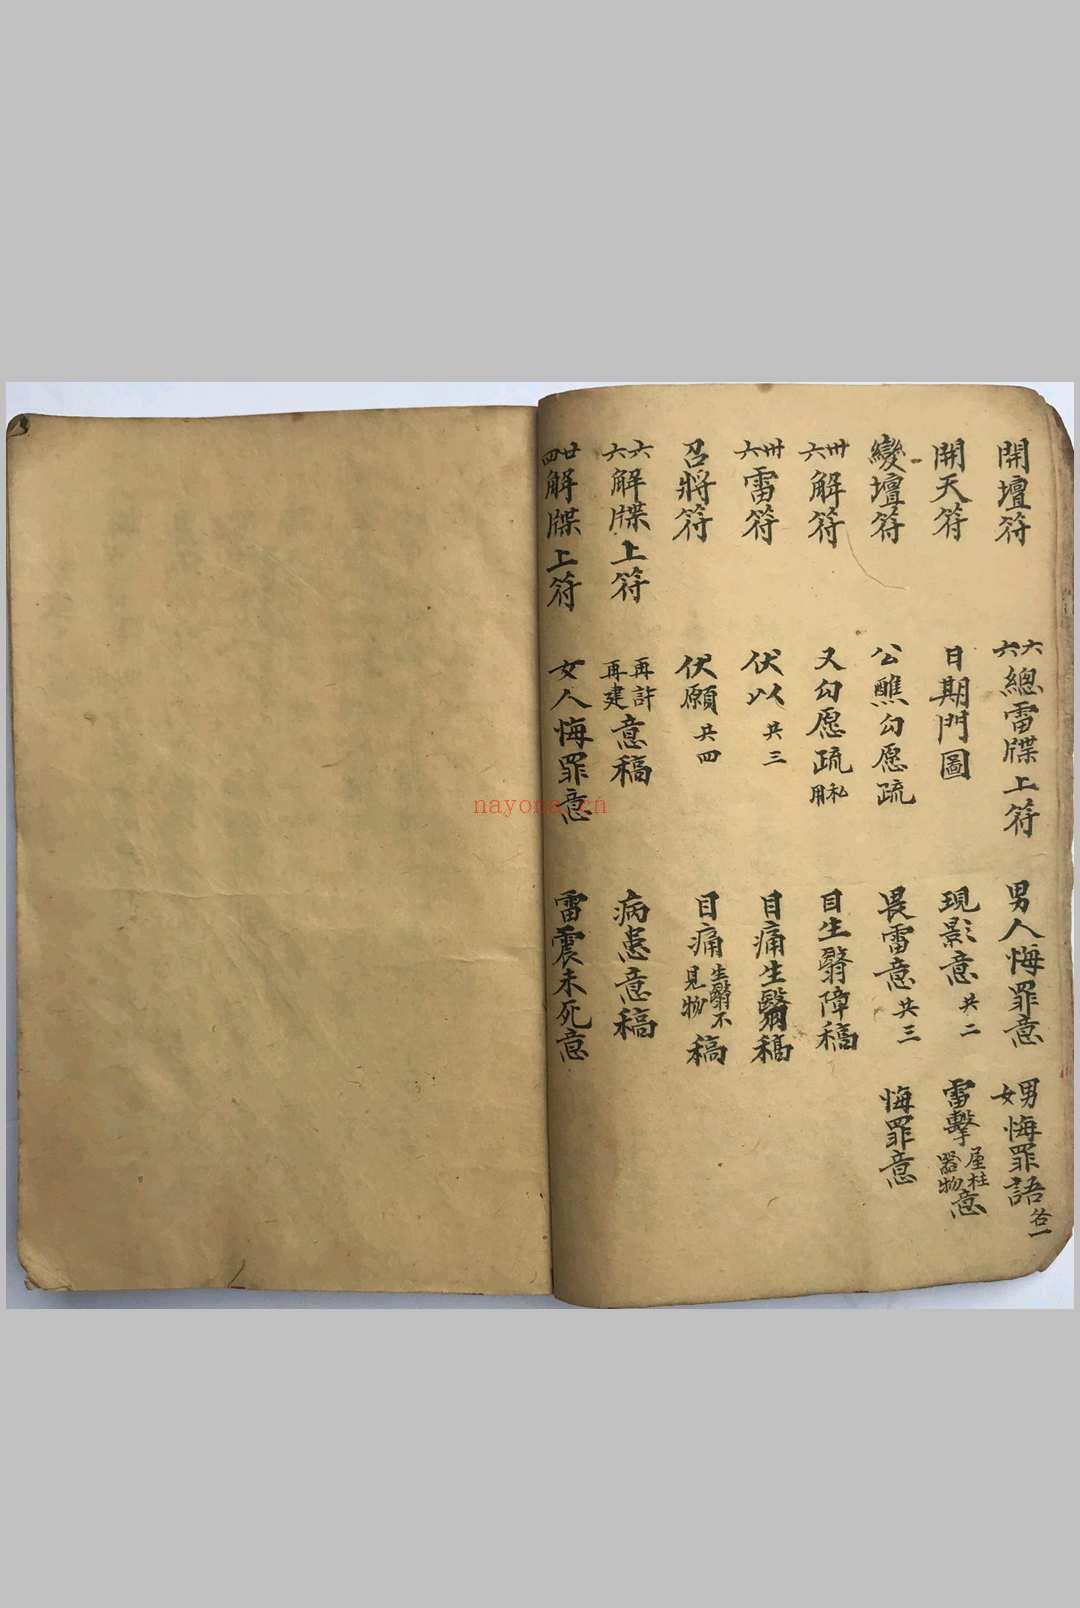 開壇符
六六總雷牒上符
男人悔罪意
男女悔罪語 各一
開天符
日期門圖
現影意 共二
雷擊屋柱器物意
變壇符
公醮勾愿疏
畏雷意 共三
悔罪意
卅六解符
又勾愿疏 私用
目生翳障稿
卅六雷符
伏以 共三
目痛生翳稿
召將符
伏願 共四
目痛生翳不見物稿
六六解牒上符
再許再建意稿
病患意稿
廿四解牒上符
女人悔罪意
雷震未死意
nayona.cn